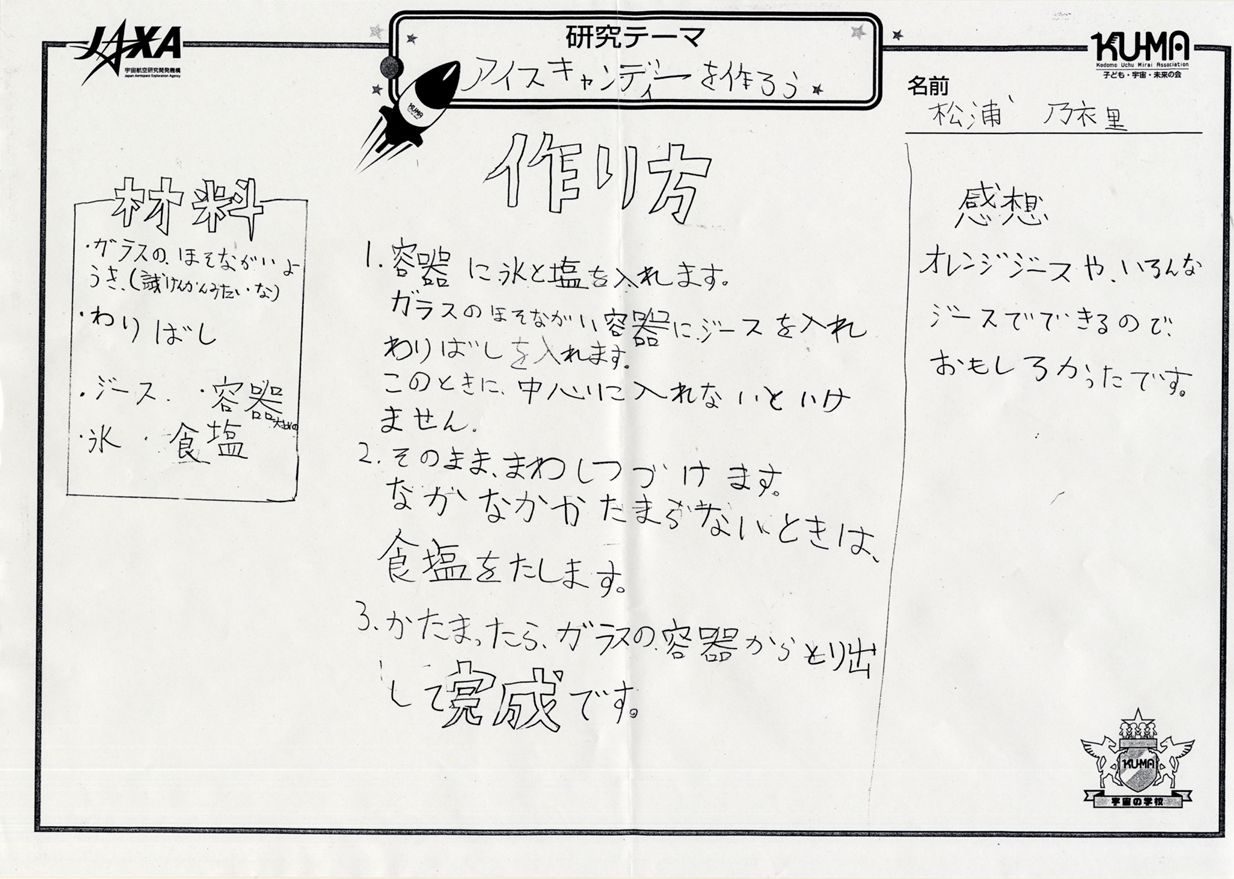 JAXA
宇宙航空研究開発機構
Japan Aerospace Exploration Agency
研究テーマ
アイスキャンディーを作ろう
KU-MA
Kodomo Uchu Mirai Association
子ども・宇宙・未来の会
名前
松浦 乃衣里
材料
・ガラスの、ほそながいよ
うき、(試けんかんみたいな)
・わりばし
・ジース ・容器
・氷 ・食塩
作り方
1. 容器に氷と塩を入れます。
ガラスのほそながい容器に、ジースを入れ
わりばしを入れます。
このときに、中心に入れないといけ
ません。
2. そのまま、まわしつづけます。
なかなかかたまらないときは、
食塩をたします。
3. かたまったら、ガラスの容器からとり出
して完成です。
感想
オレンジジースや、いろんな
ジースでできるので、
おもしろかったです。
KU-MA
宇宙の学校